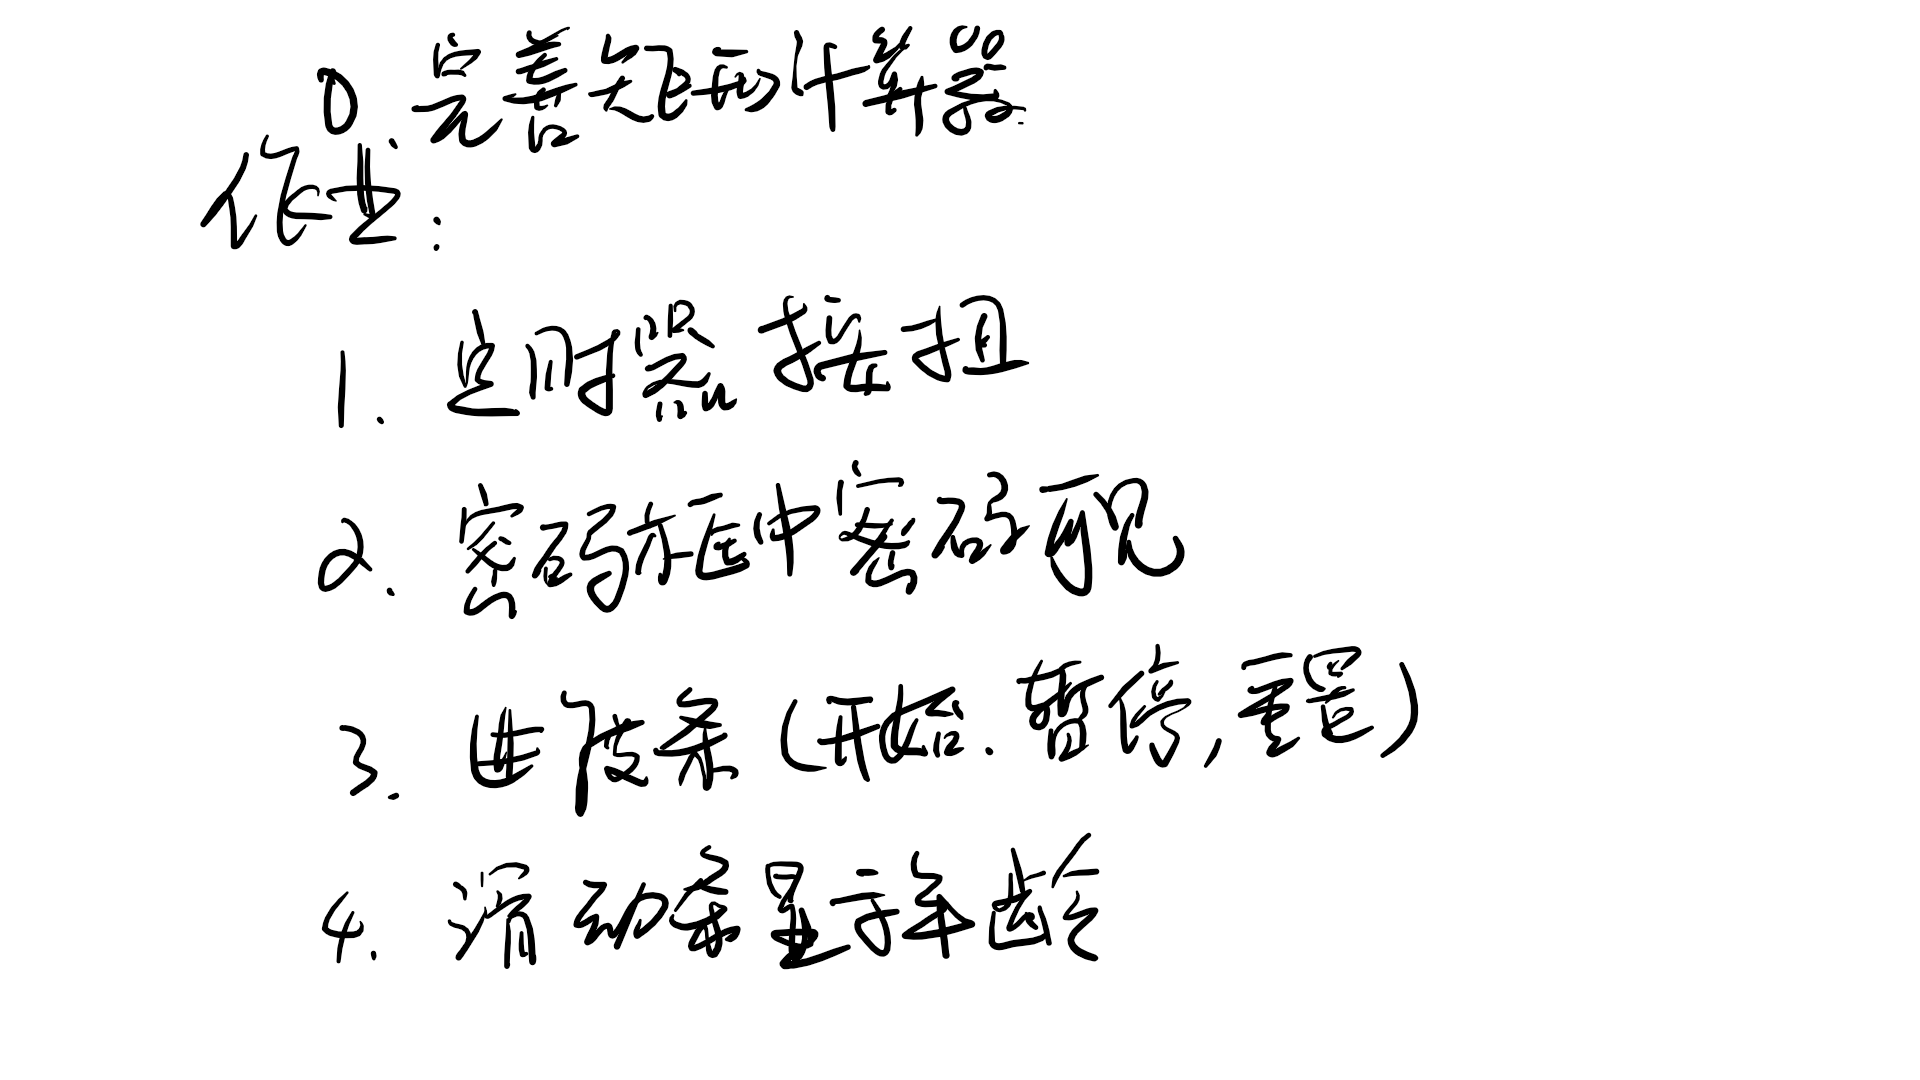 0. 完善矩形计算器
作业:
1. 定时器 按扭
2. 密码框中密码可见
3. 进度条 (开始. 暂停, 重置)
4. 滑动条显示年龄